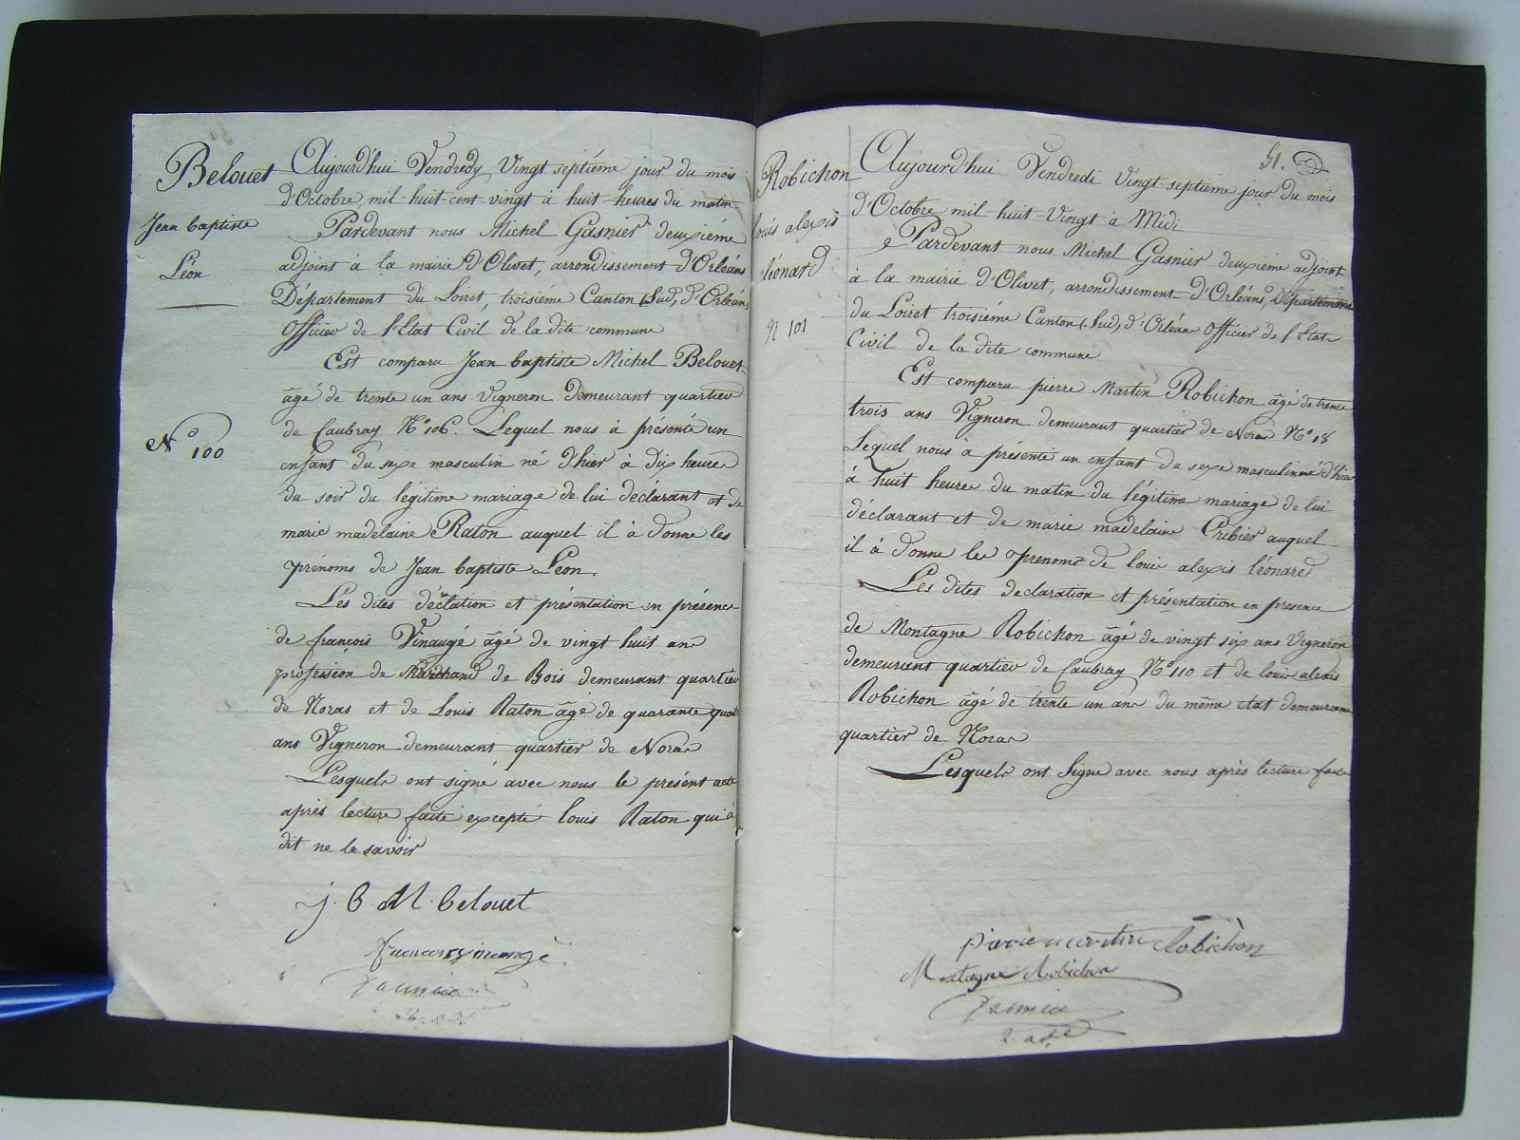 Belouet
Jean baptiste
Léon
N° 100
Aujourd'hui Vendredy Vingt septiéme jour du mois
d'Octobre, mil-huit-cent vingt à huit heures du matin
Pardevant nous Michel Gasnier deuxiéme
adjoint à la mairie d'Olivet, arrondissement d'Orléans
Département du Loiret, troisiéme Canton (Sud) d'Orléans
Officier de l'Etat Civil de la dite commune
Est comparu Jean baptiste Michel Belouet
âgé de trente un ans Vigneron Demeurant quartier
de Caubray N° 106. Lequel nous à présenté un
enfant du sexe masculin né d'hier à dix heures
du soir du légitime mariage de lui déclarant et de
marie madelaine Raton auquel il à donné les
prénoms de Jean baptiste Léon.
Les dites déclation et présentation en présence
de françois Vinaugé âgé de vingt huit ans
profession de Marchand de Bois demeurant quartier
de Noras et de Louis Raton âgé de quarante quat
ans Vigneron demeurant quartier de Noras
Lesquels ont signé avec nous le présent acte
après lecture faite excepté louis Raton qui à
dit ne le savoir
j. B M. belouet
francois vinaugé
Gasnier
51.
Robichon
louis alexis
léonard
N 101
Aujourd'hui Vendredi Vingt septieme jour du mois
d'Octobre mil-huit-Vingt à Midi
Pardevant nous Michel Gasnier deuxieme adjoint
à la mairie d'Olivet, arrondissement d'Orléans, Département
du Loiret troisiéme Canton (Sud) d'Orléans Officier de l'Etat
Civil de la dite commune
Est comparu pierre Martin Robichon âgé de trente
trois ans Vigneron demeurant quartier de Noras N° 18
Lequel nous à présenté un enfant du sexe masculin né d'hier
à huit heures du matin du légitime mariage de lui
déclarant et de marie madelaine Cribier auquel
il à donné les prenoms de louis alexis léonard
Les dites declaration et présentation en presence
de Montagne Robichon âgé de vingt six ans Vigneron
demeurent quartier de Caubray N° 110 et de louis alexis
Robichon âgé de trente un ans du même etat demeurant
quartier de Noras
Lesquels ont Signé avec nous après lecture faite
pierre martin Robichon
Montagne Robichon
Gasnier
2. adj